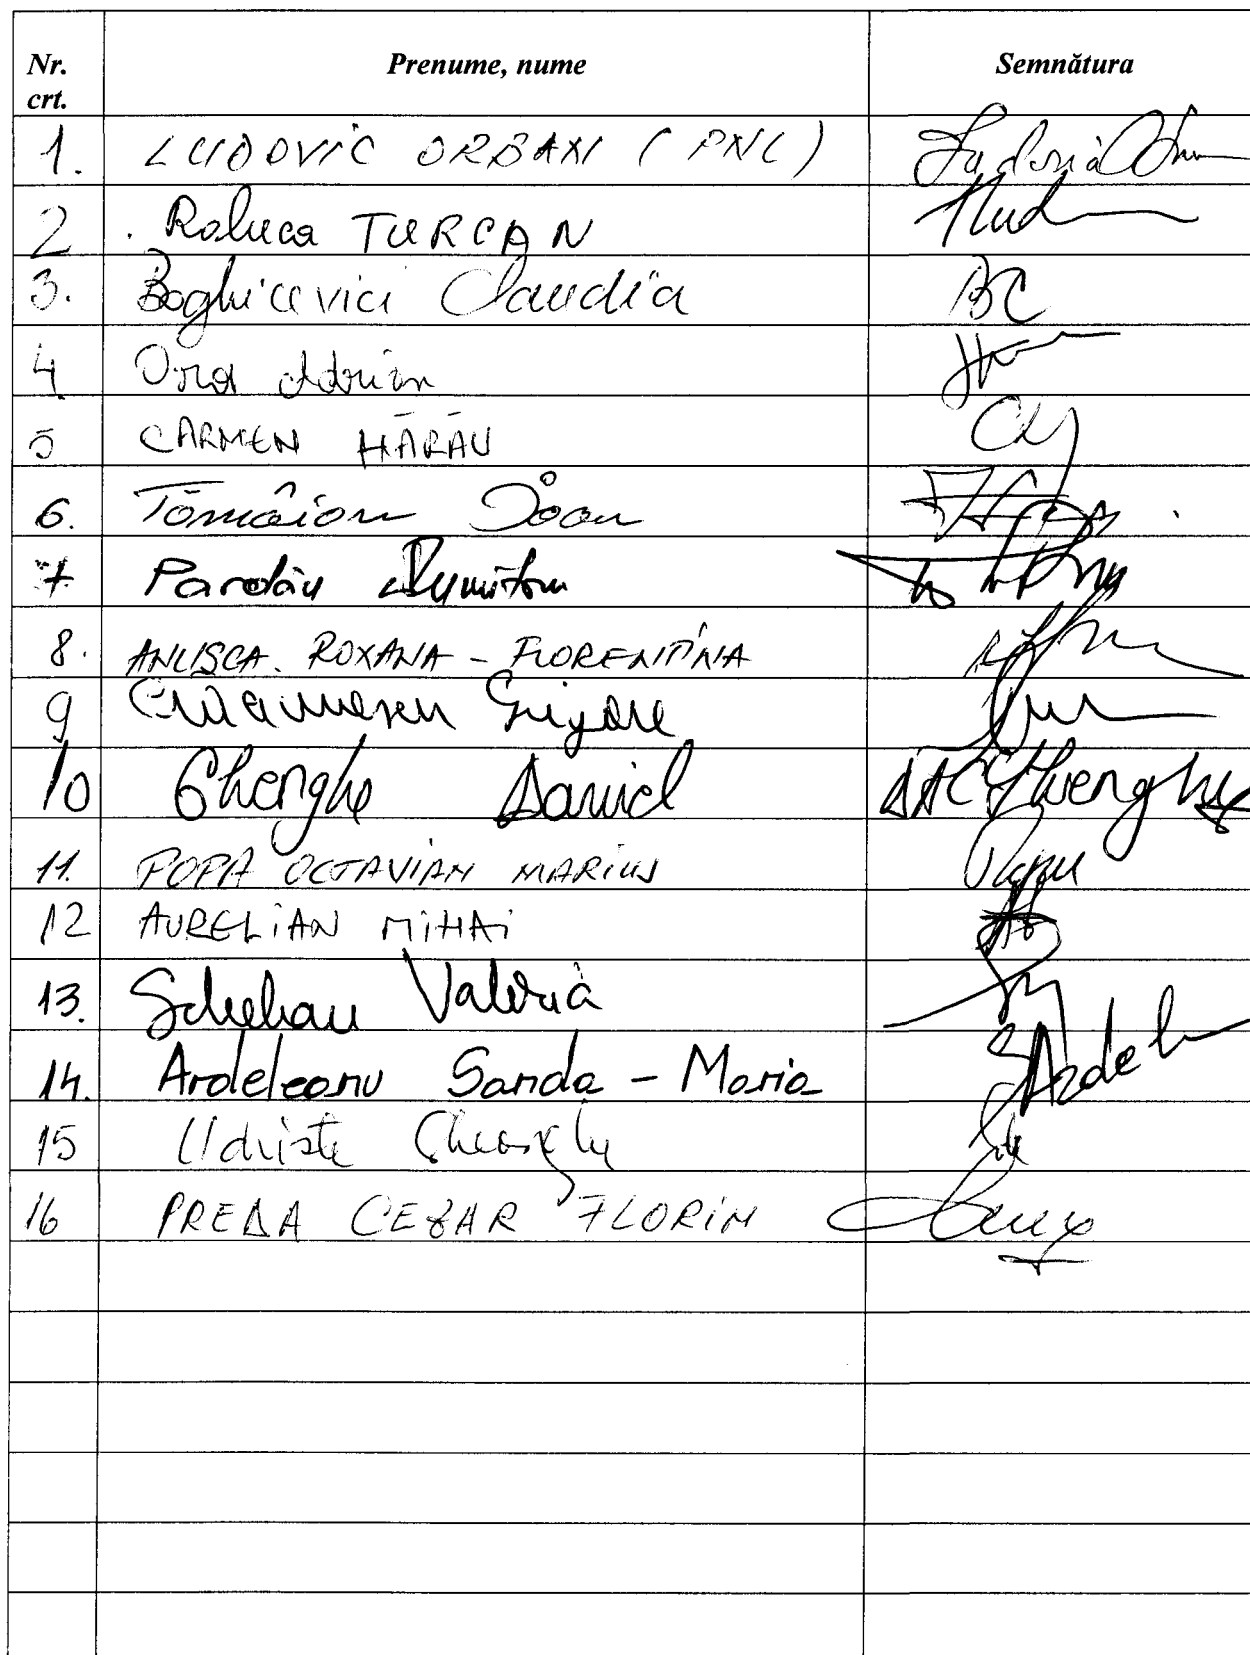 Nr. crt. Prenume, nume Semnătura
1. LUDOVIC ORBAN (PNL)
2 Raluca TURCAN
3. Boghicevici Claudia BC
4 Oros Adrian
5 CARMEN HĂRĂU
6. Tămâian Ioan
7 Pardău Dumitru
8. ANUSCA ROXANA - FLORENTINA
9 Crăciunescu Grigore
10 Gherghe Daniel
11. POPA OCTAVIAN MARIUS
12 AURELIAN MIHAI
13. Schelean Valeria
14. Ardeleanu Sanda - Maria Ardel
15 Udriște Gheorghe
16 PREDA CEZAR FLORIN